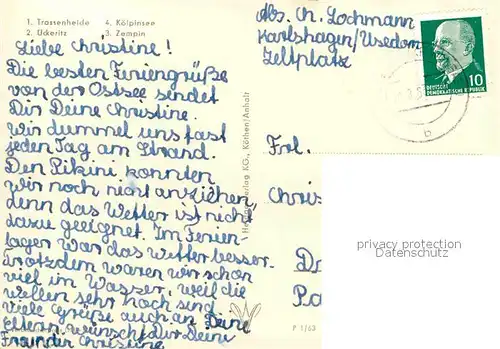 1. Trassenheide 4. Kölpinsee
2. Ückeritz 3. Zempin
Liebe Christine!
Die besten Feriengrüße
von der Ostsee sendet
Dir Deine Christine.
Wir dummel uns fast
jeden Tag am Strand.
Den Pikini konnten
wir noch nicht anziehen,
denn das Wetter ist nicht
dazu geeignet. Im Ferien-
lager war das Wetter besser.
Trotzdem waren wir schon
viel im Waszer, weil die
Wellen sehr hoch sind
Viele Grüße auch an Deine
Eltern wünscht Dir Deine
Freundin Christine
Verlag KG., Köthen/Anhalt
Abs. Ch. Lochmann
Karlshagen/Usedom
Zeltplatz
DEUTSCHE
DEMOKRATISCHE REPUBLIK
10
b
Frl.
Chris
privacy protection
Datenschutz
P 1/63